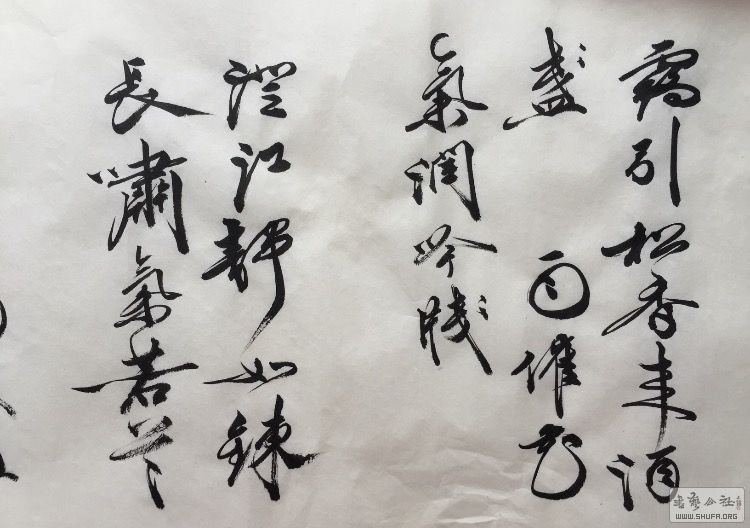 露引松香来酒
盞 雨催花
氣潤吟牋
澄江靜如鍊
長嘯氣若兰
書藝公社
WWW.SHUFA.ORG